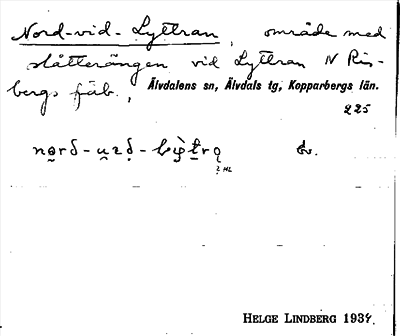 Nord-vid-Lyttran, område med
slåtterängen vid Lyttran N Ris-
bergs fäb., Älvdalens sn, Älvdals tg, Kopparbergs län.
225
HELGE LINDBERG 1937.